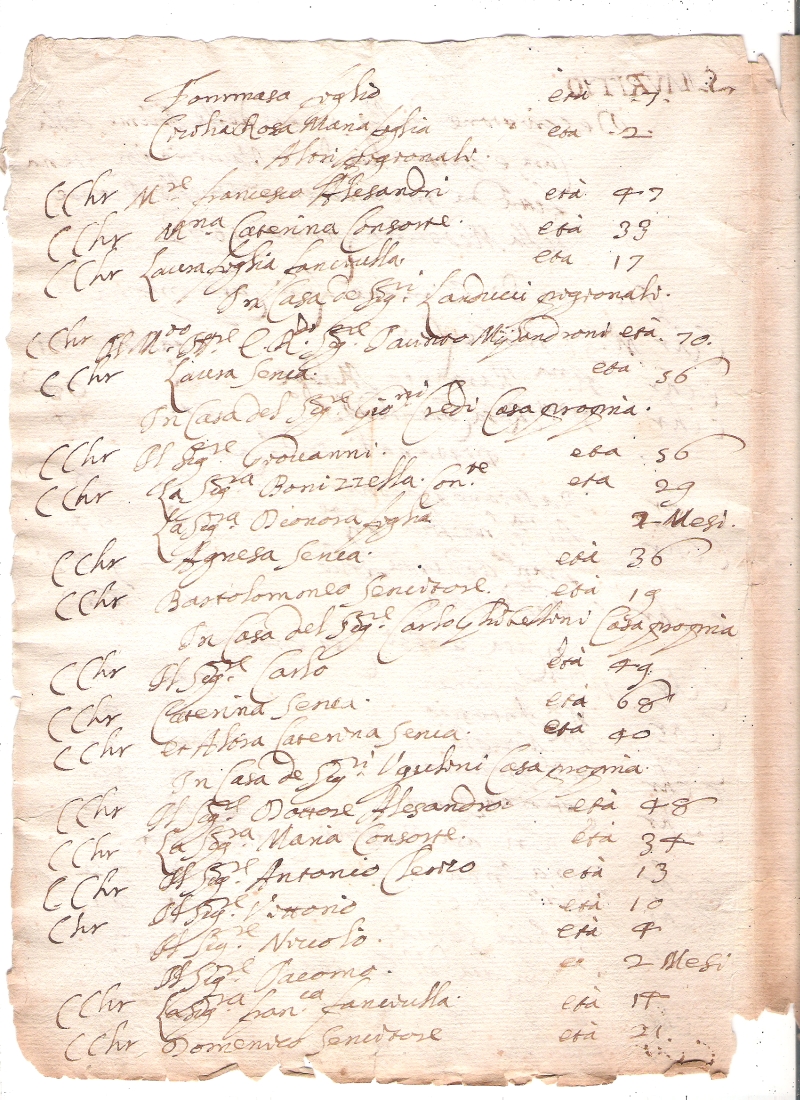 Tommasa figlia età 7.
Cecilia Rosa Maria figlia età 2.
Altri pigionali.
CChr M.re Francesco Alesandri età 47
CChr M.na Caterina Consorte. età 33
CChr Laura figlia fanciulla. età 17
In Casa de Sig.ri Larducci pigionali.
CChr Il M.to Sig.re età 70.
CChr Laura Serva. età 56
In Casa del Sig.re Gio Credi Casa propria.
CChr Il Sig.re Giovanni. età 56
CChr La Sig.ra Bonizzella Con.te età 29
La Sig.ra Dionora figlia 2 Mesi.
CChr Agnesa Serva. età 36
CChr Bartolomoneo Servitore. età 19
In Casa del Sig.re Carlo Ghibellini Casa propria
CChr Il Sig.re Carlo età 49
CChr Caterina Serva. età 68
CChr et Altra Caterina Serva. età 40
In Casa de Sig.ri Ugulini Casa propria.
CChr Il Sig.re Dottore Alesandro. età 48
CChr La Sig.ra Maria Consorte. età 34
CChr Il Sig.re Antonio Clerico età 13
Chr Il Sig.re Vittorio età 10
Il Sig.re Niccolò. età 4
Il Sig.re Jacomo. 2 Mesi
CChr La Sig.ra Fran.ca fanciulla. età 14
CChr Domenico Servitore età 21.